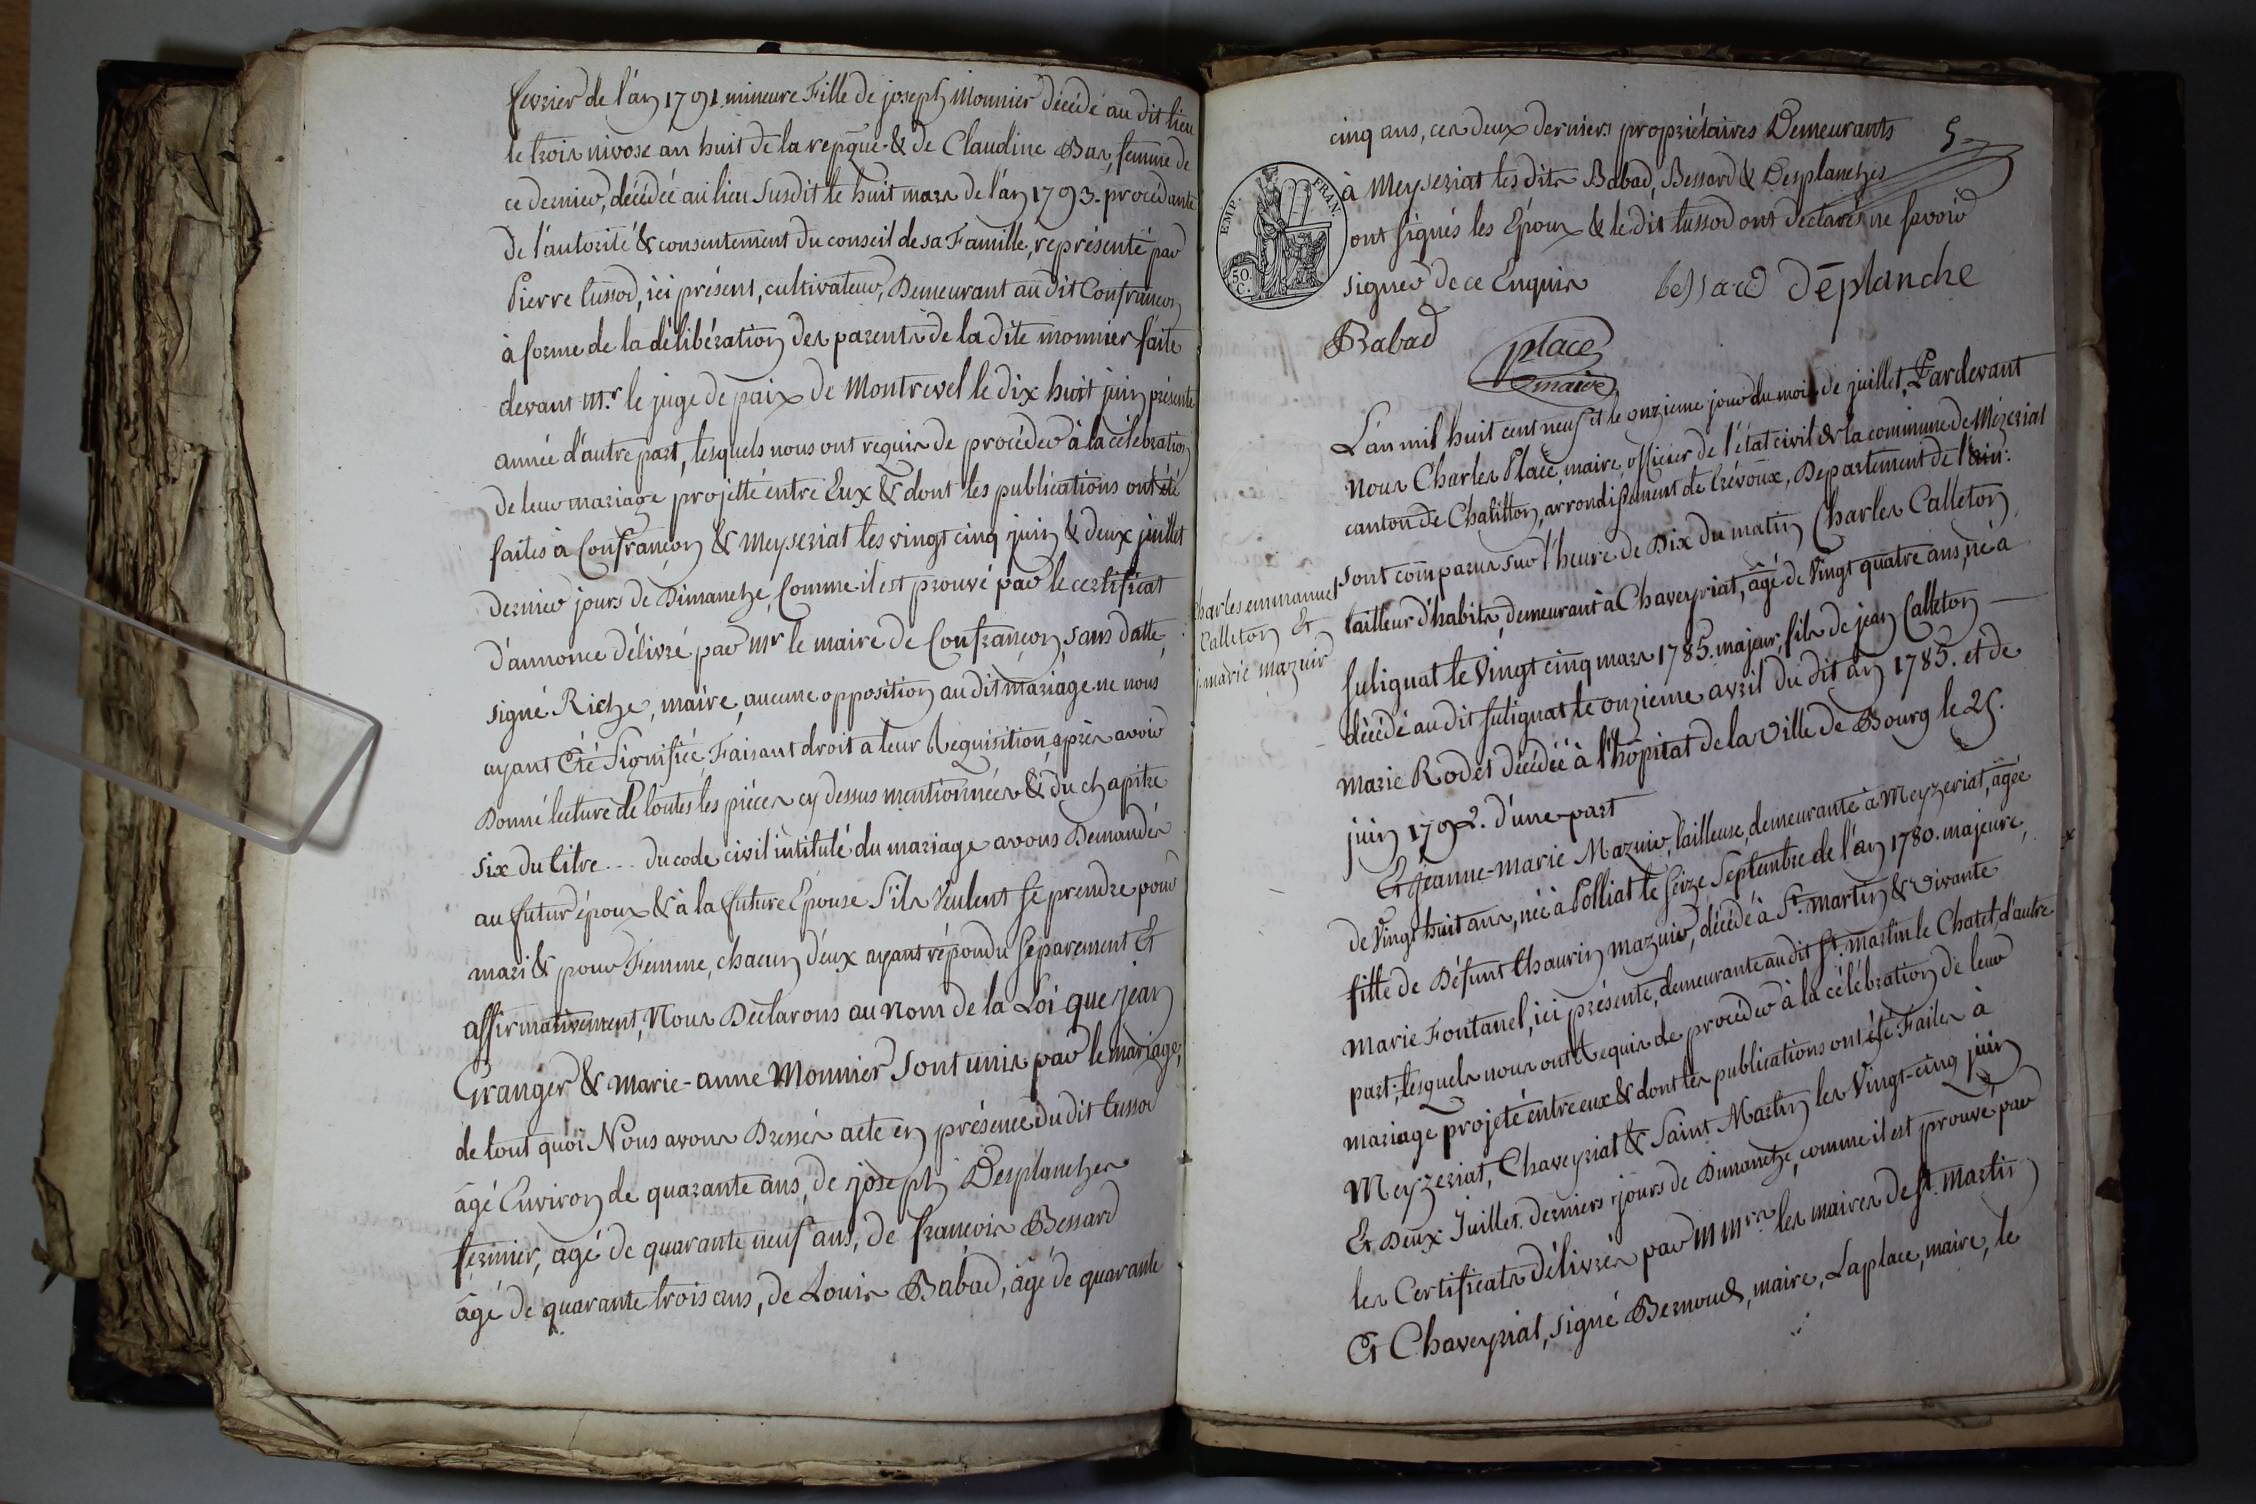 fevrier de l'an 1791. mineure Fille de joseph Monnier décédé au dit lieu
le trois nivose an huit de la repque. & de Claudine Bas, femme de
ce dernier, décédée au lieu susdit le huit mars de l'an 1793. procédante
de l'autorité & consentement du conseil de sa Famille, représenté par
Pierre tussod, ici présent, cultivateur, Demeurant au dit Confrançon
à forme de la délibération des parents de la dite monnier faite
devant Mr. le juge de paix de Montrevel le dix huit juin présente
année d'autre part, lesquels nous ont requis de procéder à la célébration
de leur mariage projetté entre Eux & dont les publications ont été
faites à Confrançon & Meyseriat les vingt cinq juin & deux juillet
dernier jours de Dimanche, Comme il est prouvé par le certificat
d'annonce délivré par Mr le maire de Confrançon, sans datte,
signé Riche, maire, aucune opposition au dit mariage ne nous
ayant Eté Signifiée, Faisant droit a leur Réquisition après avoir
Donné lecture de toutes les pièces cy dessus mentionnées & du chapitre
six du titre ... du code civil intitulé du mariage avons Demandés
au futur époux & à la future Epouse S'ils Veulent se prendre pour
mari & pour Femme, chacun d'eux ayant répondu séparement Et
affirmativement, Nous Déclarons au nom de la Loi que jean
Granger & marie-anne Monnier Sont unis par le mariage,
de tout quoi Nous avons Dressés acte en présence du dit tussod
âgé Environ de quarante ans, de joseph Desplanches
fermier, agé de quarante neuf ans, de francois Bessard
âgé de quarante trois ans, de Louis Babad, âgé de quarante
cinq ans, ces deux derniers propriétaires Demeurants
5
à Meyseriat les dits Babad, Bessard & Desplanches
EMP. FRAN.
50. C.
ont signés les Epoux & le dit tussod ont déclarés ne savoir
signer de ce Enquis
bessard Déplanche
Babad
place
maire
L'an mil huit cent neuf et le onzieme jour du mois de juillet, Pardevant
Nous Charles Place, maire, officier de l'état civil de la commune de Mézeriat
canton de Chatillon, arrondissement de trévoux, Departement de l'ain:
sont comparus sur l'heure de Dix du matin Charles Calleton
Charles emmanuel
Calleton Et
j. marie mazuir
tailleur d'habits, demeurant à Chaveyriat, âgé de Vingt quatre ans, né à
sulignat le Vingt cinq mars 1785. majeur, fils de jean Calleton
décédé au dit sulignat le onzieme avril du dit an 1785. et de
Marie Rodet décédée à l'hôpital de la ville de Bourg le 25.
juin 1792. d'une part
Et Jeanne-Marie Mazuir, tailleuse, demeurante à Meyzeriat, âgée
de Vingt huit ans, née à Polliat le seize Septembre de l'an 1780. majeure,
fille de Défunt thaurin mazuir, décédé à St. martin & vivante
Marie Fontanel, ici présente, demeurante au dit St. martin le Chatel, d'autre
part; lesquels nous ont Requis de procéder à la célébration de leur
mariage projeté entre eux & dont les publications ont été Faites à
Meyzeriat, Chaveyriat & Saint Martin les Vingt-cinq juin
Et Deux Juillet. derniers jours de Dimanche, comme il est prouvé par
les Certificats délivrés par MMrs. les maires de St. Martin
Et Chaveyriat, signé Bernoud, maire, Laplace, maire, le